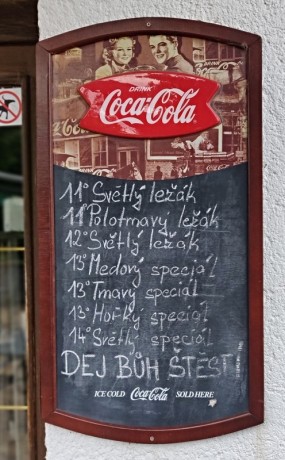 DRINK
Coca-Cola
11° Světlý ležák
11° Polotmavý ležák
12° Světlý ležák
13° Medový speciál
13° Tmavý speciál
13° Hořký speciál
14° Světlý speciál
DEJ BŮH ŠTĚSTÍ
ICE COLD Coca-Cola SOLD HERE